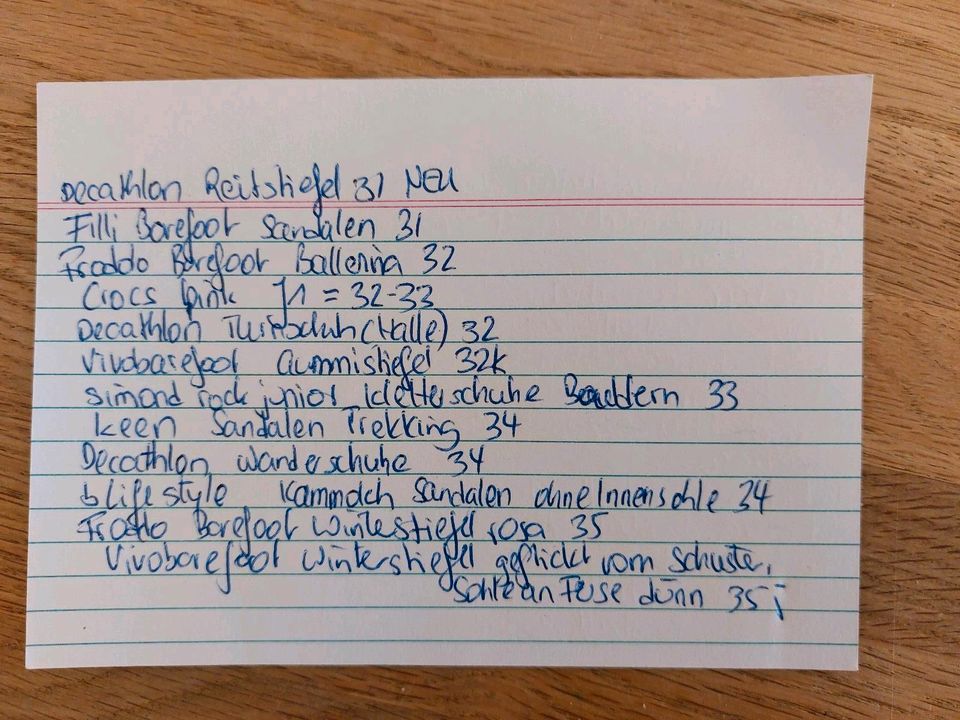 Decathlon Reitstiefel 31 NEU
Filli Barefoot Sandalen 31
Froddo Barefoot Ballerina 32
Crocs pink J1 = 32-33
Decathlon Turnschuh (Halle) 32
Vivobarefoot Gummistiefel 32k
Simond rock junior Kletterschuhe Bouldern 33
Keen Sandalen Trekking 34
Decathlon Wanderschuhe 34
b lifestyle Sandalen ohne Innensohle 34
Froddo Barefoot Winterstiefel rosa 35
Vivobarefoot Winterstiefel geflickt vom Schuster,
Sohle an Ferse dünn 35